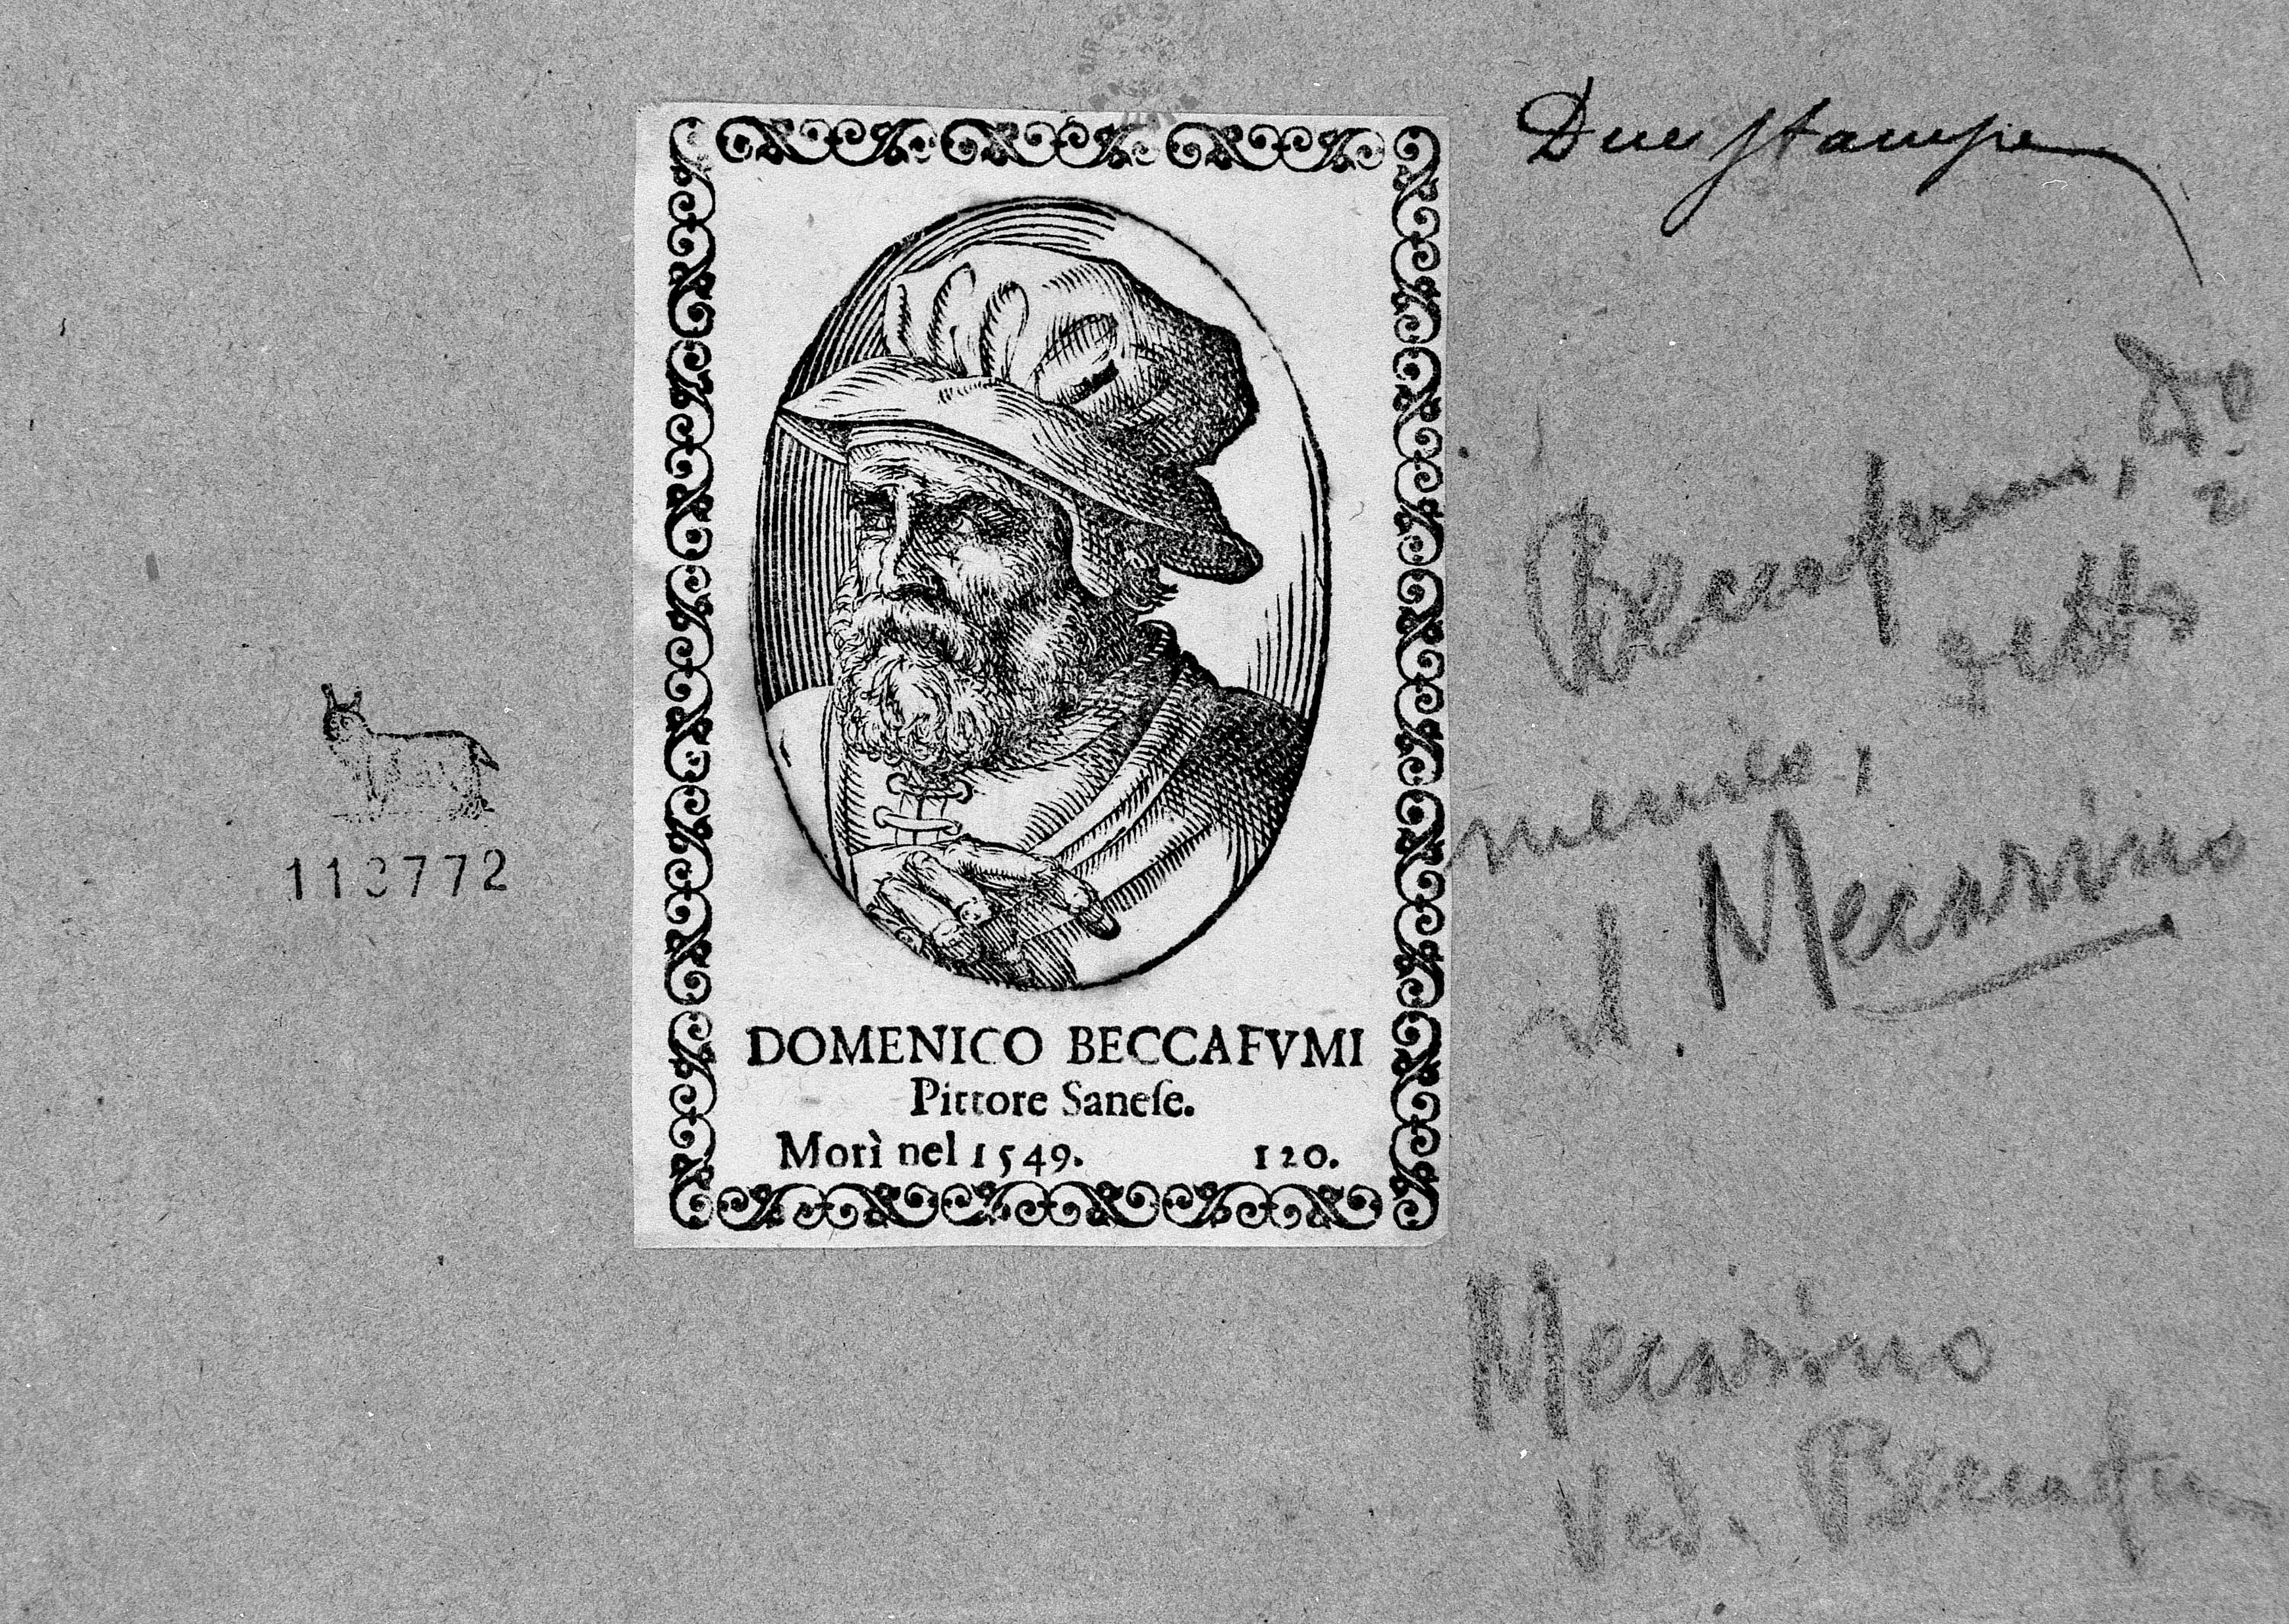 Due stampe
Beccafumi, Do
getto
menico,
il Mecarino
113772
DOMENICO BECCAFVMI
Pittore Saneſe.
Morì nel 1549. 120.
Mecarino
Ved. Beccafu